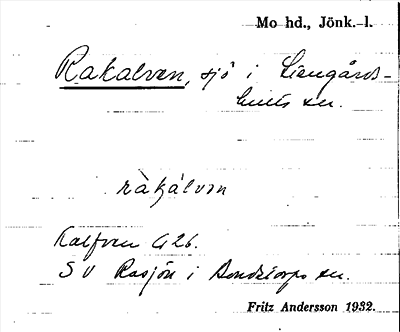 Mo hd., Jönk. l.
Rakalven, sjö i Stengårds-
hults sn.
råkálven
Kalfven G 26.
SV Rasjön i Bondstorps sn.
Fritz Andersson 1932.